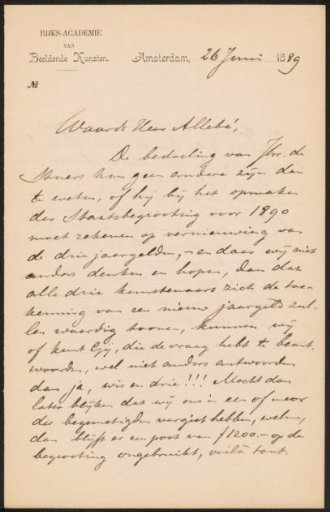 RIJKS-ACADEMIE
VAN
Beeldende Kunsten.
Amsterdam, 26 Juni 1889
No
Waarde Heer Allebé,
De bedoeling van Jhr. de
Stuers kan geen andere zijn dan
te weten, of hij bij het opmaken
der Staatsbegrooting voor 1890
moet rekenen op vernieuwing van
de drie jaargelden, – en daar wij niet
anders denken en hopen, dan dat
alle drie kunstenaars zich de toe-
kenning van een nieuw jaargeld zul-
len waardig toonen, kunnen wij
of kunt Gij, die de vraag hebt te beant-
woorden, wel niet anders antwoorden
dan ja, wis en drie!!! Mocht dan
later blijken dat wij ons in een of meer
der begunstigden vergist hebben, welnu,
dan blijft er een post van ƒ1200,– op de
begrooting ongebruikt, voilà tout.